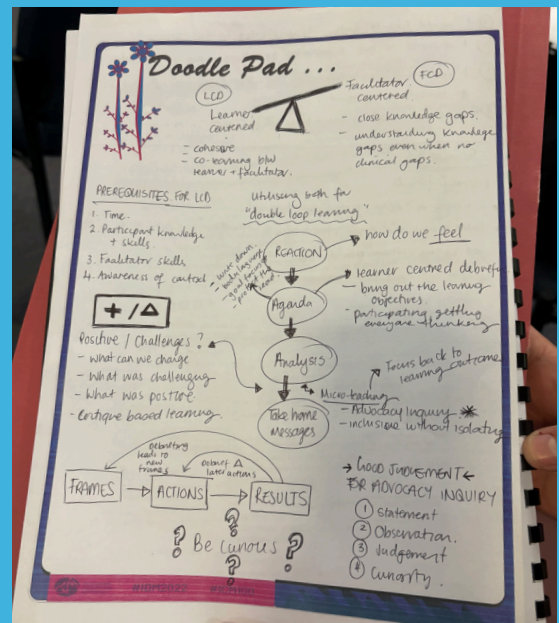 Doodle Pad ...
LCD
Learner centered.
- cohesive
- co-learning b/w
learner + facilitator.
FCD
Facilitator
centered
- close knowledge gaps.
- understanding knowledge
gaps even when no
clinical gaps.
PREREQUISITES FOR LCD
1. Time.
2. Participant knowledge
+ skills.
3. Facilitator skills
4. Awareness of context
Utilising both for
"double loop learning"
REACTION
how do we feel
- write down.
body language
- goal
Agenda
learner centred debrief
- bring out the learning
objectives.
- participating, getting
everyone thinking
+ / Δ
Positive / Challenges ?
- What can we change
- What was challenging
- What was positive
- Critique based learning.
Analysis
Focus back to
learning outcome
Micro-teaching
- Advocacy Inquiry
- inclusive without isolating
Take home
Messages
Debriefing
leads to
new
frames
Debrief Δ
later actions
FRAMES
ACTIONS
RESULTS
? Be curious ?
?
?
→ GOOD JUDGEMENT ←
FOR ADVOCACY INQUIRY
1 Statement
2 Observation.
3 Judgement
4 Curiosity.